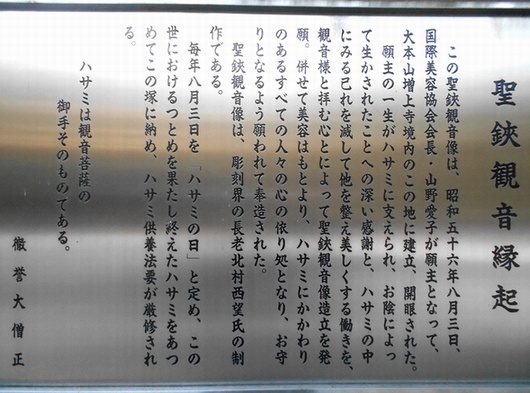 聖鋏観音縁起
この聖鋏観音像は、昭和五十六年八月三日、
国際美容協会会長・山野愛子が願主となって、
大本山増上寺境内のこの地に建立、開眼された。
願主の一生がハサミに支えられ、お陰によっ
て生かされたことへの深い感謝と、ハサミの中
にみる己れを滅して他を整え美しくする働きを、
観音様と拝む心とによって聖鋏観音像造立を発
願。併せて美容はもとより、ハサミにかかわり
のあるすべての人々の心の依り処となり、お守
りとなるよう願われて奉造された。
聖鋏観音像は、彫刻界の長老北村西望氏の制
作である。
毎年八月三日を「ハサミの日」と定め、この
世におけるつとめを果たし終えたハサミをあつ
めてこの塚に納め、ハサミ供養法要が厳修され
る。
ハサミは観音菩薩の
御手そのものてある。
徹誉大僧正